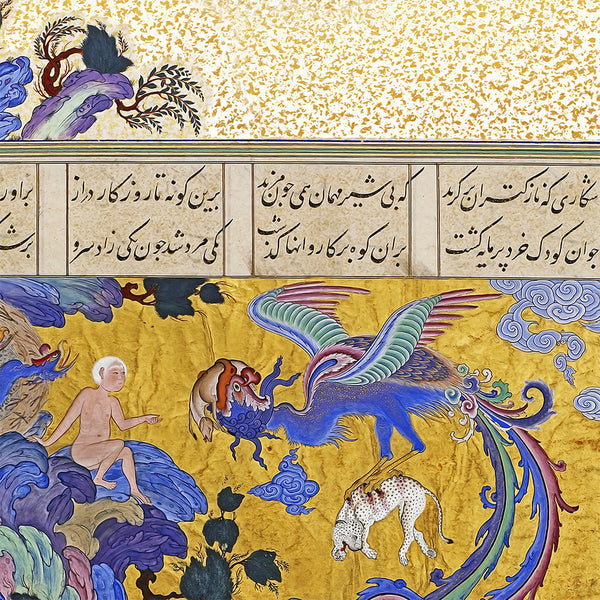 شکاری که نازکتر ان برگزید که بی شیر مهمان همی خون مزید برین گونه تا روزگار دراز
جوان کودک خرد پرمایه گشت بران کوه بر کاروانها گذشت یکی مرد شد چون یکی زاد سرو